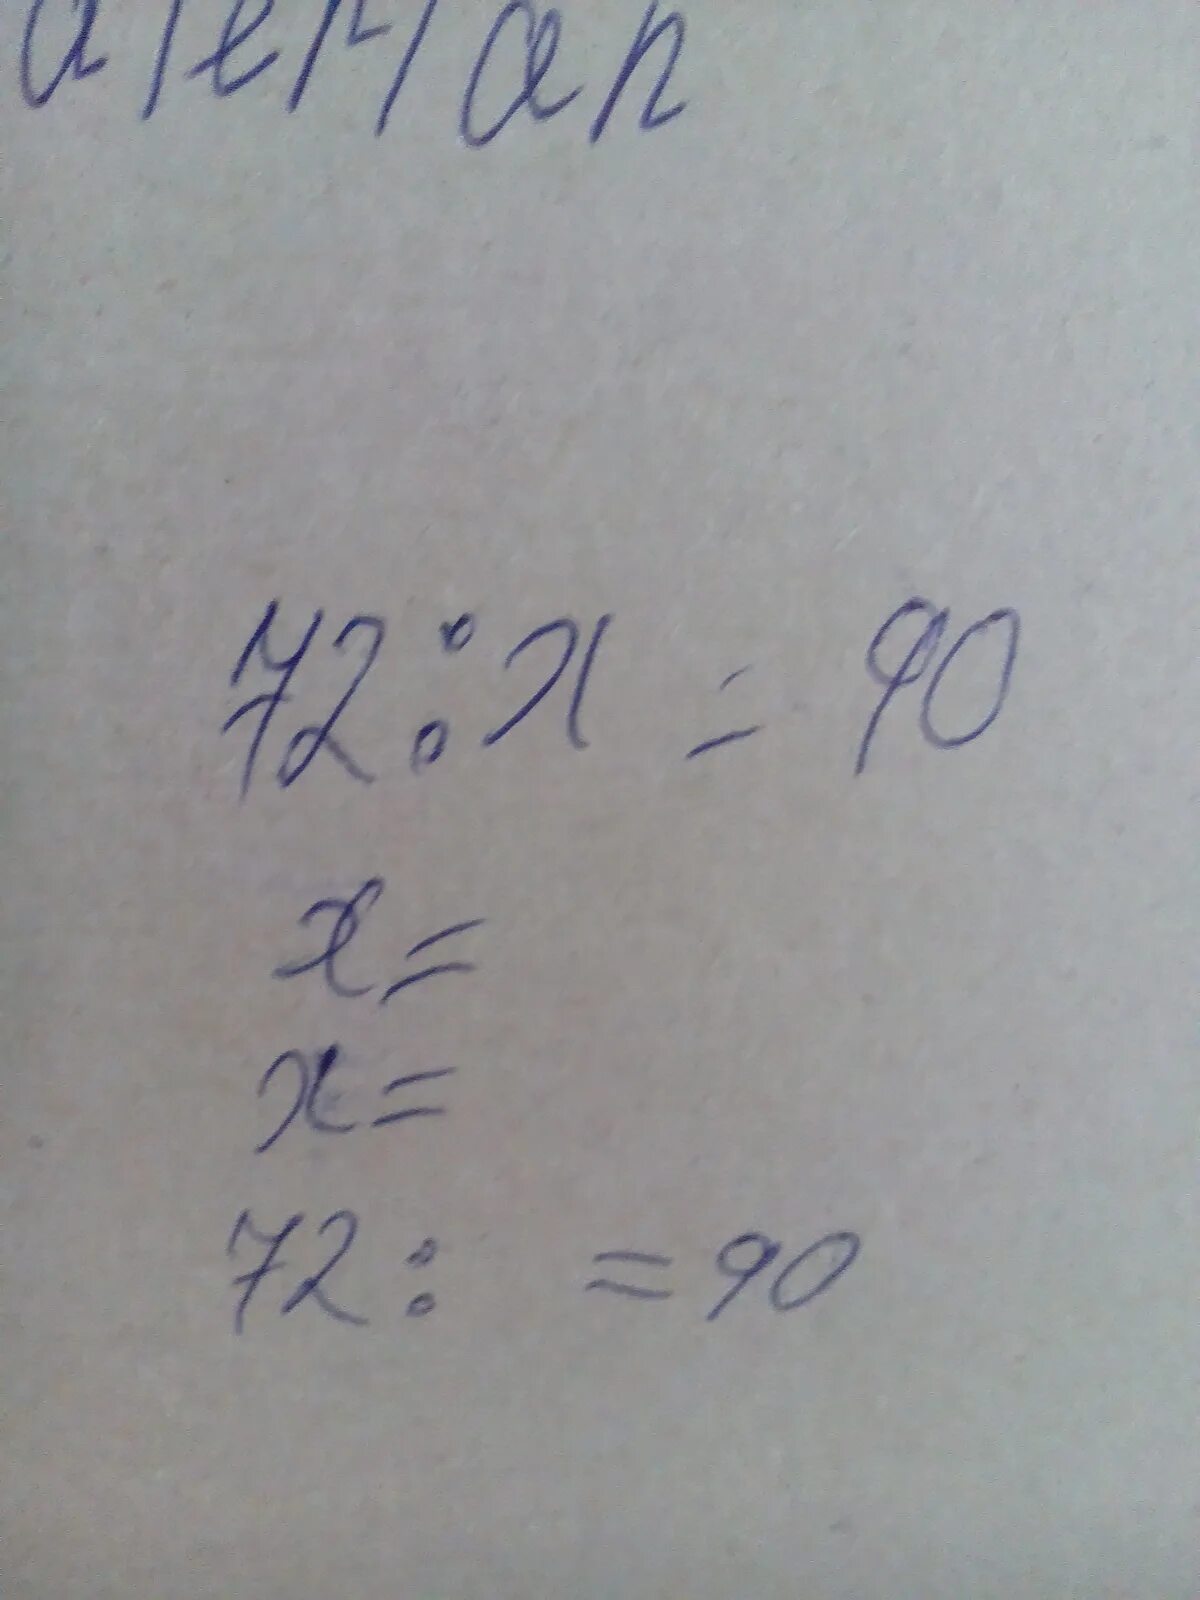 72 : x = 90
x =
x =
72 : = 90